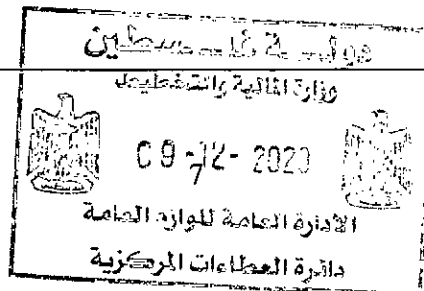 دولة فلسطين
وزارة المالية والتخطيط
09-12-2020
7
الادارة العامة للوازم العامة
دائرة العطاءات المركزية